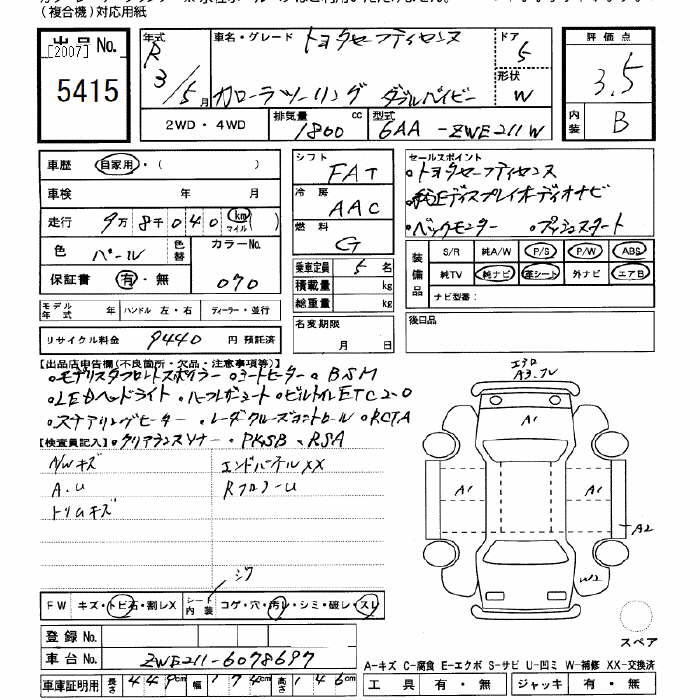 (複合機)対応用紙
出品No.
[2007]
5415
年式 R 3/5月
車名・グレード トヨタセーフティセンス
カローラツーリング ダブルバイビー
ドア 5
形状 W
評価点 3.5
内装 B
2WD・4WD
排気量 1800 cc
型式 6AA-ZWE211W
車歴 自家用・( )
車検 年 月
走行 9万8千040 km マイル ( )
色 パール 色替 カラーNo. 070
保証書 有・無
モデル年式 年 ハンドル 左・右 ディーラー・並行
リサイクル料金 9440 円 預託済
シフト FAT
冷房 AAC
燃料 G
乗車定員 5 名
積載量 kg
総重量 kg
名変期限
月 日
セールスポイント
・トヨタセーフティセンス
・純正ディスプレイオーディオナビ
・バックモニター ・プッシュスタート
装備品
S/R 純A/W P/S P/W ABS
純TV 純ナビ 革シート 外ナビ エアB
ナビ型番:
後日品
【出品店申告欄(不良箇所・欠品・注意事項等)】
・モデリスタフロントスポイラー ・シートヒーター ・BSM
・LEDヘッドライト ・ハーフレザーシート ・ビルトインETC2.0
・ステアリングヒーター ・レーダークルーズコントロール ・RCTA
【検査員記入】・クリアランスソナー ・PKSB ・RSA
A/Wキズ エンドパネルXX
A.U RフロアーU
トリムキズ
シワ
FW キズ・トビ石・割レX シート内装 コゲ・穴・汚レ・シミ・破レ・スレ
登録No.
車台No. ZWE211-6078697
車庫証明用 長さ 449cm 幅 174cm 高さ 146cm
エアロ
A3.ワレ
A1
A1
A1
A2
W2
スペア
A-キズ C-腐食 E-エクボ S-サビ U-凹ミ W-補修 XX-交換済
工具 有・無 ジャッキ 有・無